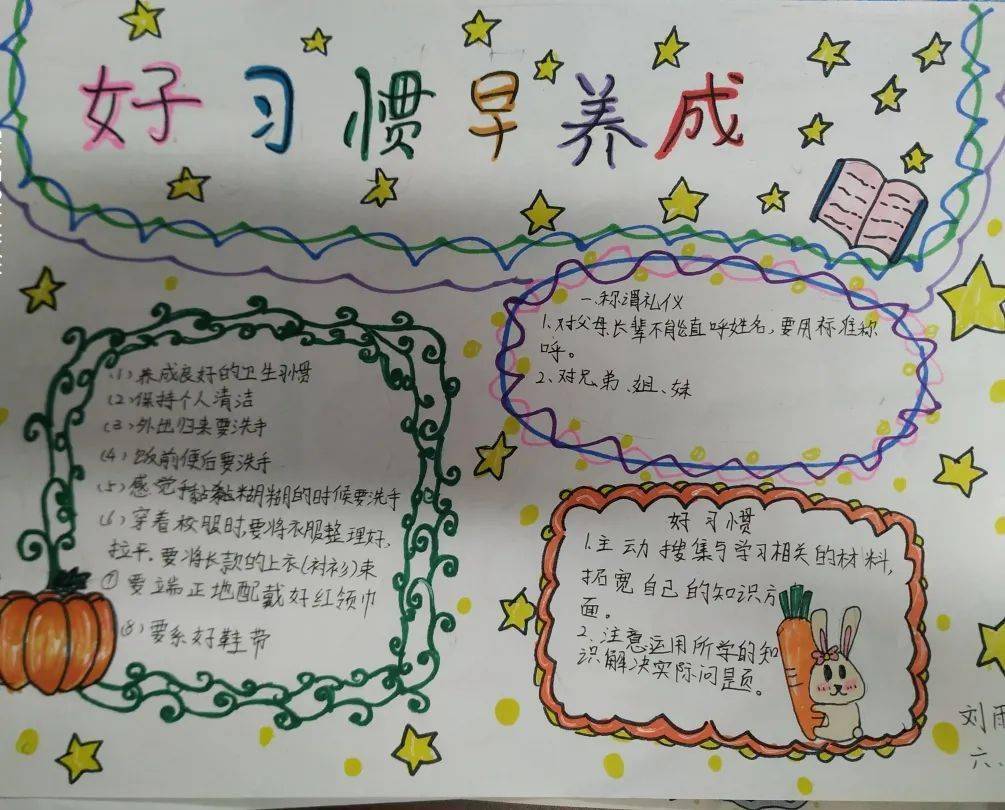 好习惯早养成
(1)养成良好的卫生习惯
(2)保持个人清洁
(3)外出归来要洗手
(4)饭前便后要洗手
(5)感觉手黏黏糊糊的时候要洗手
(6)穿着校服时,要将衣服整理好,
拉平,要将长款的上衣(衬衫)束
⑦要端正地配戴好红领巾
(8)要系好鞋带
一、称谓礼仪
1、对父母长辈不能直呼姓名,要用标准称
呼。
2、对兄弟、姐、妹
好习惯
1.主动搜集与学习相关的材料,
拓宽自己的知识方
面。
2、注意运用所学的知
识解决实际问题。
刘雨
六、